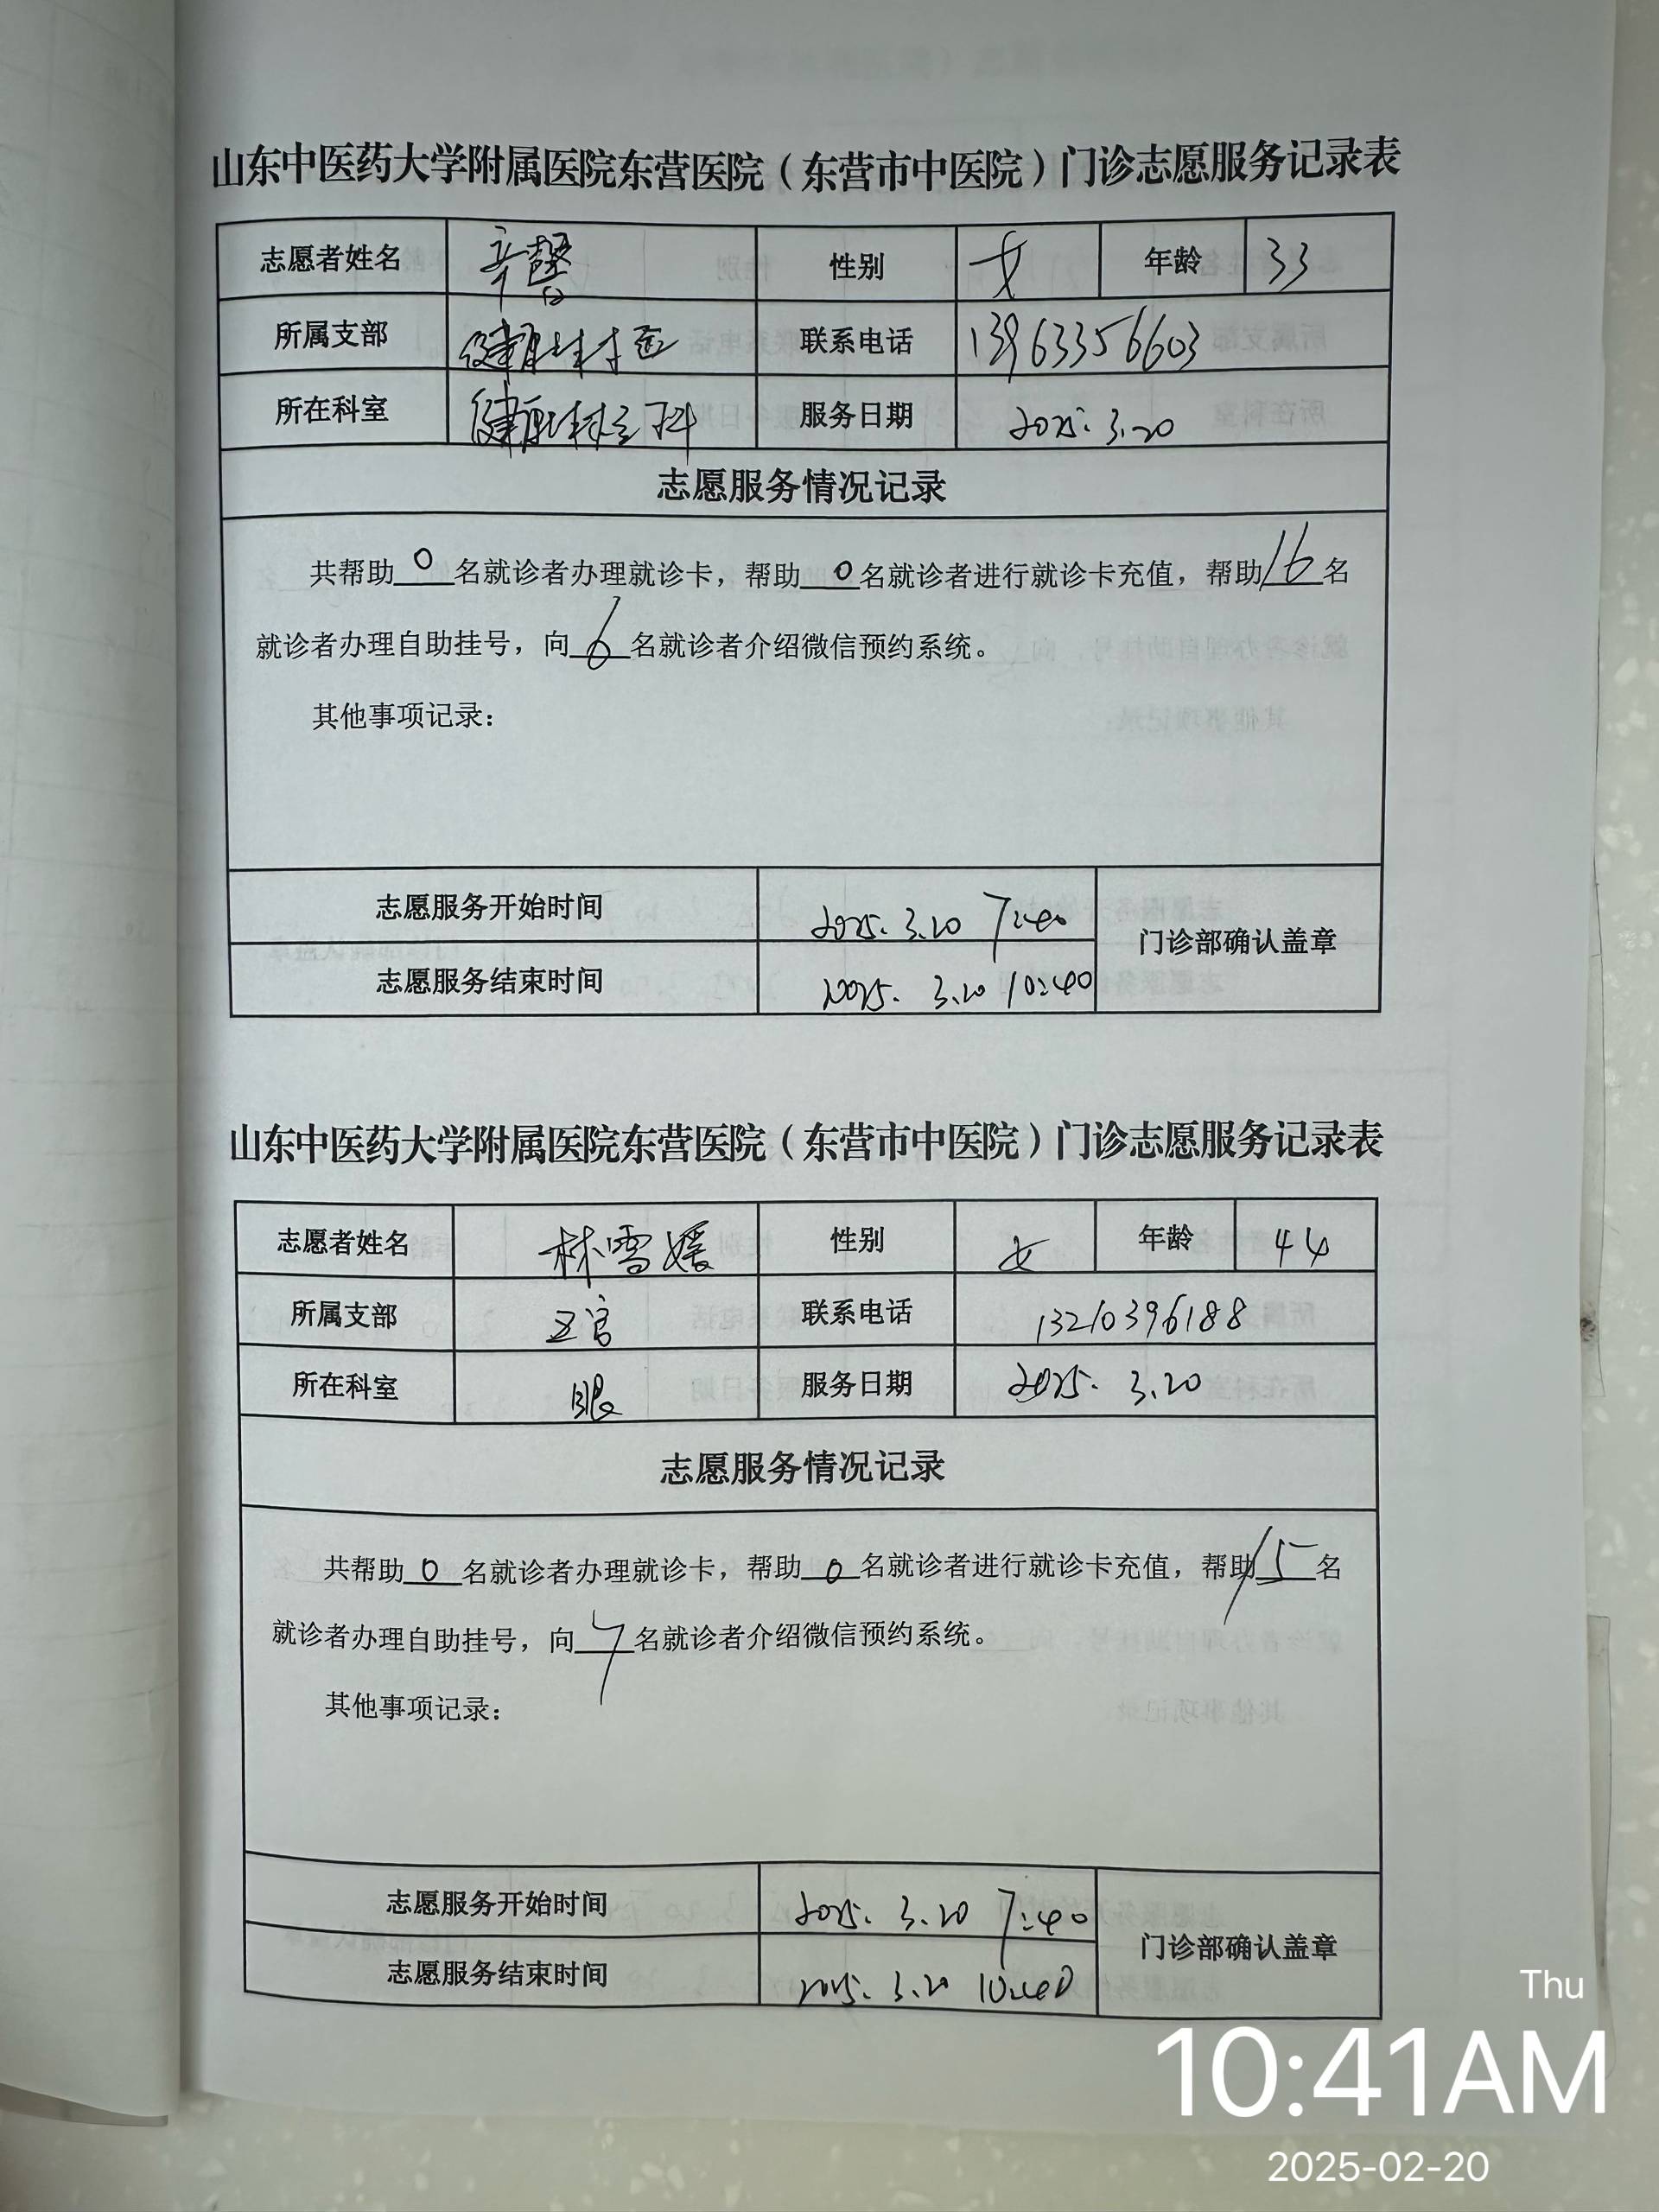 山东中医药大学附属医院东营医院（东营市中医院）门诊志愿服务记录表
志愿者姓名 辛馨 性别 女 年龄 33
所属支部 联系电话 13963356603
所在科室 服务日期 2025.3.20
志愿服务情况记录
共帮助0名就诊者办理就诊卡，帮助0名就诊者进行就诊卡充值，帮助16名
就诊者办理自助挂号，向6名就诊者介绍微信预约系统。
其他事项记录：
志愿服务开始时间 2025.3.20 7:40
门诊部确认盖章
志愿服务结束时间 2025.3.20 10:40
山东中医药大学附属医院东营医院（东营市中医院）门诊志愿服务记录表
志愿者姓名 林雪媛 性别 女 年龄 44
所属支部 五官 联系电话 13210396188
所在科室 眼 服务日期 2025.3.20
志愿服务情况记录
共帮助0名就诊者办理就诊卡，帮助0名就诊者进行就诊卡充值，帮助15名
就诊者办理自助挂号，向7名就诊者介绍微信预约系统。
其他事项记录：
志愿服务开始时间 2025.3.20 7:40
门诊部确认盖章
志愿服务结束时间 2025.3.20 10:40
Thu
10:41AM
2025-02-20